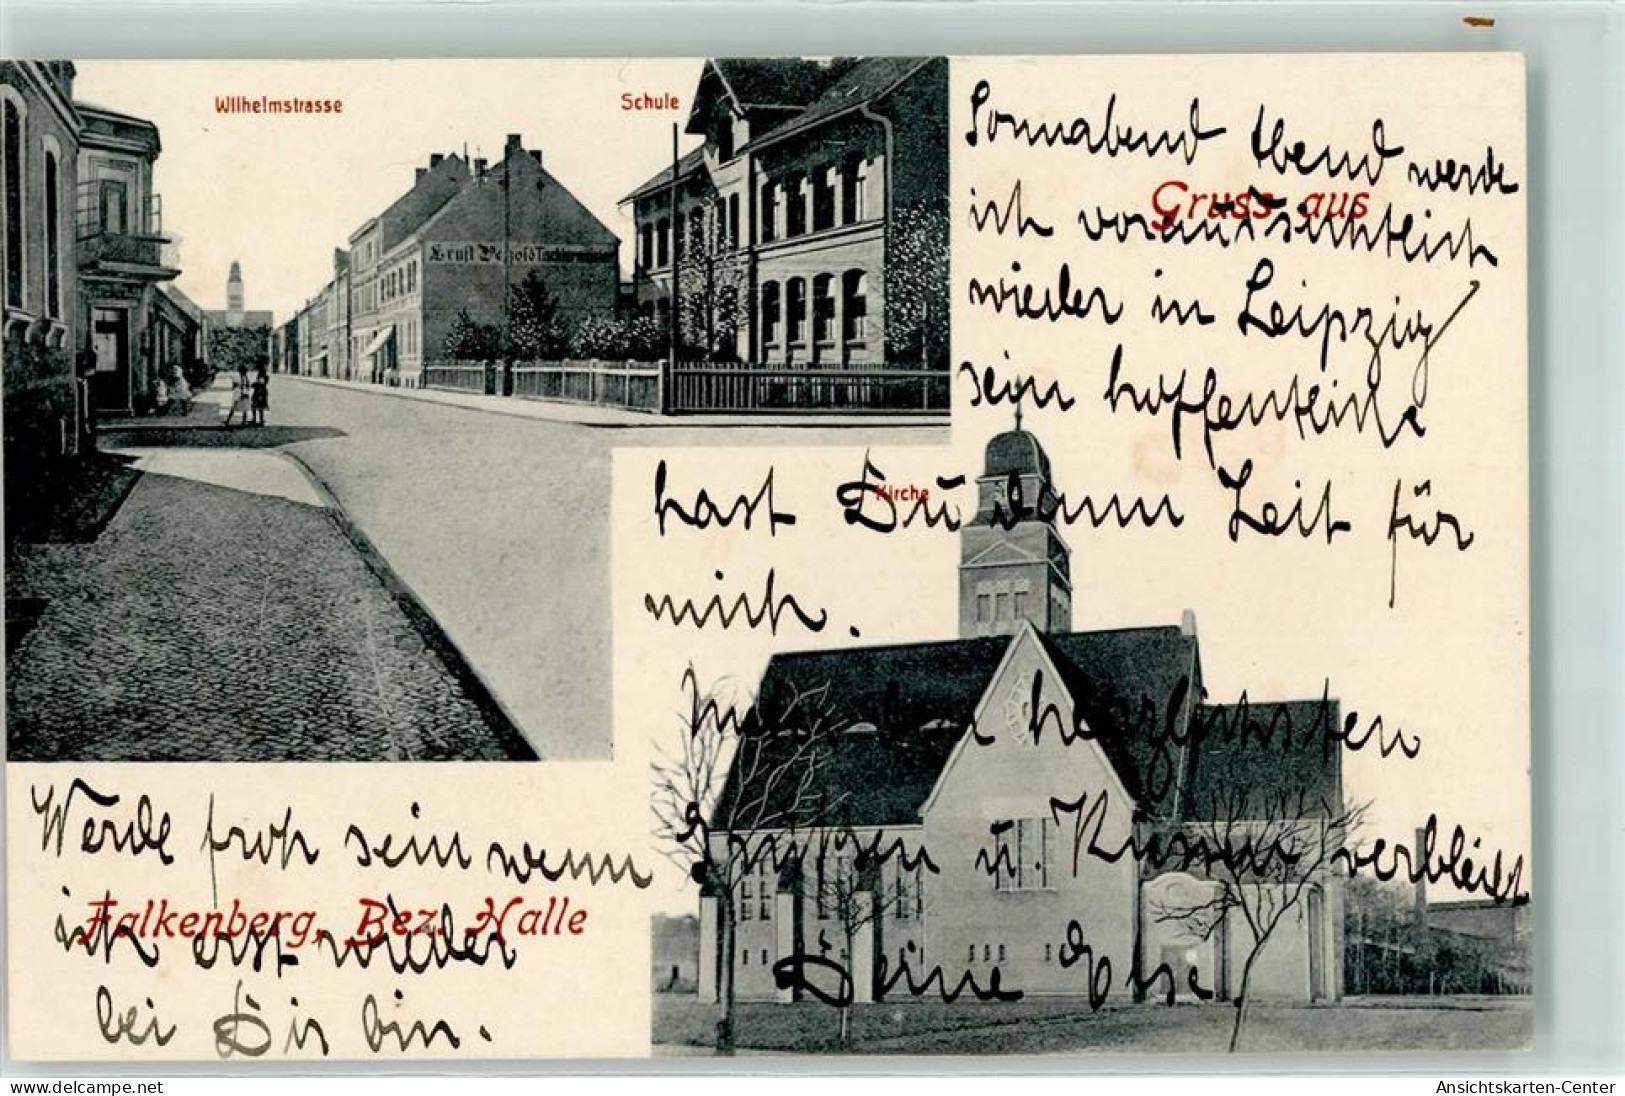 Wilhelmstrasse
Schule
Tischlermeister
Gruss aus
Sonnabend Abend werde
ich voraussichtlich
wieder in Leipzig
sein hoffentlich
hast Du dann Zeit für
mich.
Kirche
herzlichsten
Grüssen u. Küssen verbleibt
Deine Else.
Werde froh sein wenn
ich erst wieder
bei Dir bin.
Falkenberg, Bez. Halle
Ansichtskarten-Center